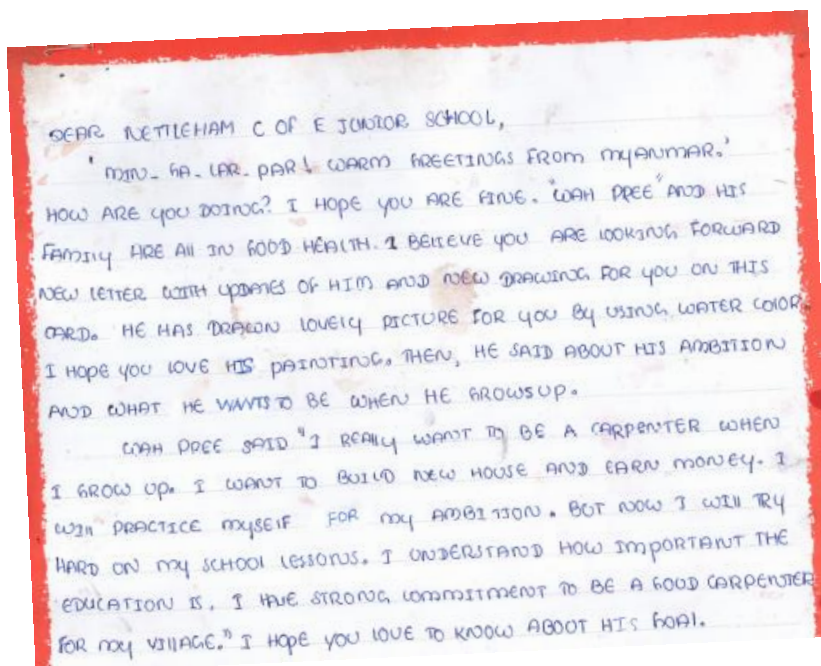 DEAR NETTLEHAM C OF E JUNIOR SCHOOL,
'MIN-GA-LAR-PAR! WARM GREETINGS FROM MYANMAR.'
HOW ARE YOU DOING? I HOPE YOU ARE FINE. "WAH PREE" AND HIS
FAMILY ARE ALL IN GOOD HEALTH. I BELIEVE YOU ARE LOOKING FORWARD
NEW LETTER WITH UPDATES OF HIM AND NEW DRAWING FOR YOU ON THIS
CARD. HE HAS DRAWN LOVELY PICTURE FOR YOU BY USING WATER COLOR.
I HOPE YOU LOVE HIS PAINTING. THEN, HE SAID ABOUT HIS AMBITION
AND WHAT HE WANTS TO BE WHEN HE GROWS UP.
WAH PREE SAID "I REALLY WANT TO BE A CARPENTER WHEN
I GROW UP. I WANT TO BUILD NEW HOUSE AND EARN MONEY. I
WILL PRACTICE MYSELF FOR MY AMBITION. BUT NOW I WILL TRY
HARD ON MY SCHOOL LESSONS. I UNDERSTAND HOW IMPORTANT THE
EDUCATION IS. I HAVE STRONG COMMITMENT TO BE A GOOD CARPENTER
FOR MY VILLAGE." I HOPE YOU LOVE TO KNOW ABOUT HIS GOAL.